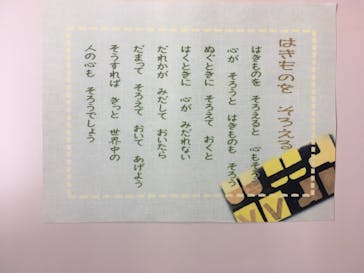 はきものを そろえる
はきものを そろえると 心もそろう
心が そろうと はきものも そろう
ぬぐときに そろえて おくと
はくときに 心が みだれない
だれかが みだして おいたら
だまって そろえて おいて あげよう
そうすれば きっと 世界中の
人の心も そろうでしょう